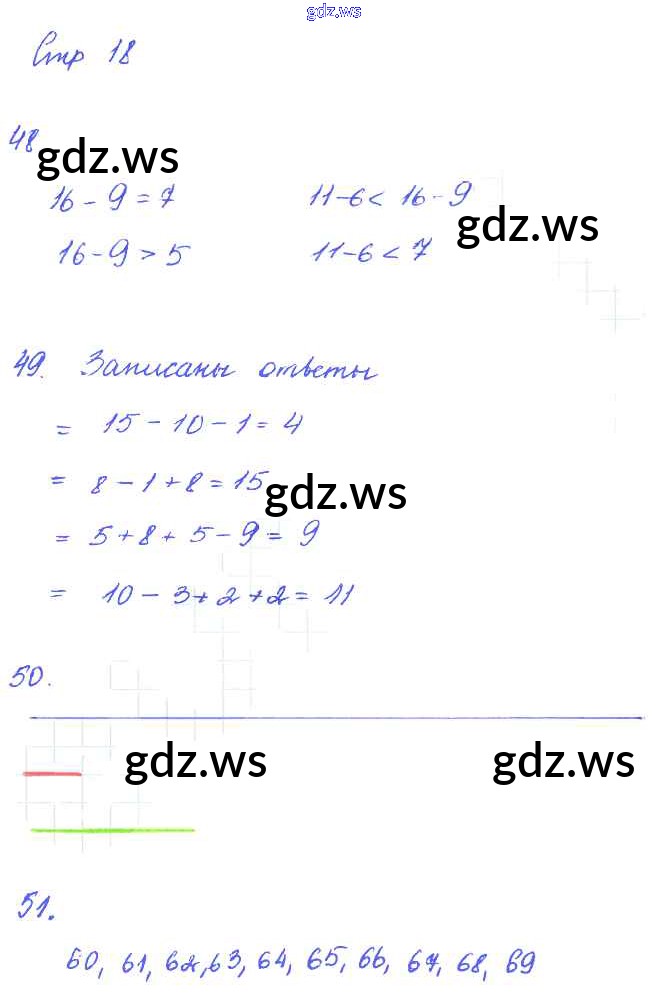 gdz.ws
Стр 18
48
gdz.ws
16 - 9 = 7 11-6 < 16 - 9
gdz.ws
16 - 9 > 5 11-6 < 7
49. Записаны ответы
= 15 - 10 - 1 = 4
= 8 - 1 + 8 = 15
gdz.ws
= 5 + 8 + 5 - 9 = 9
= 10 - 3 + 2 + 2 = 11
50.
gdz.ws gdz.ws
51.
60, 61, 62, 63, 64, 65, 66, 67, 68, 69